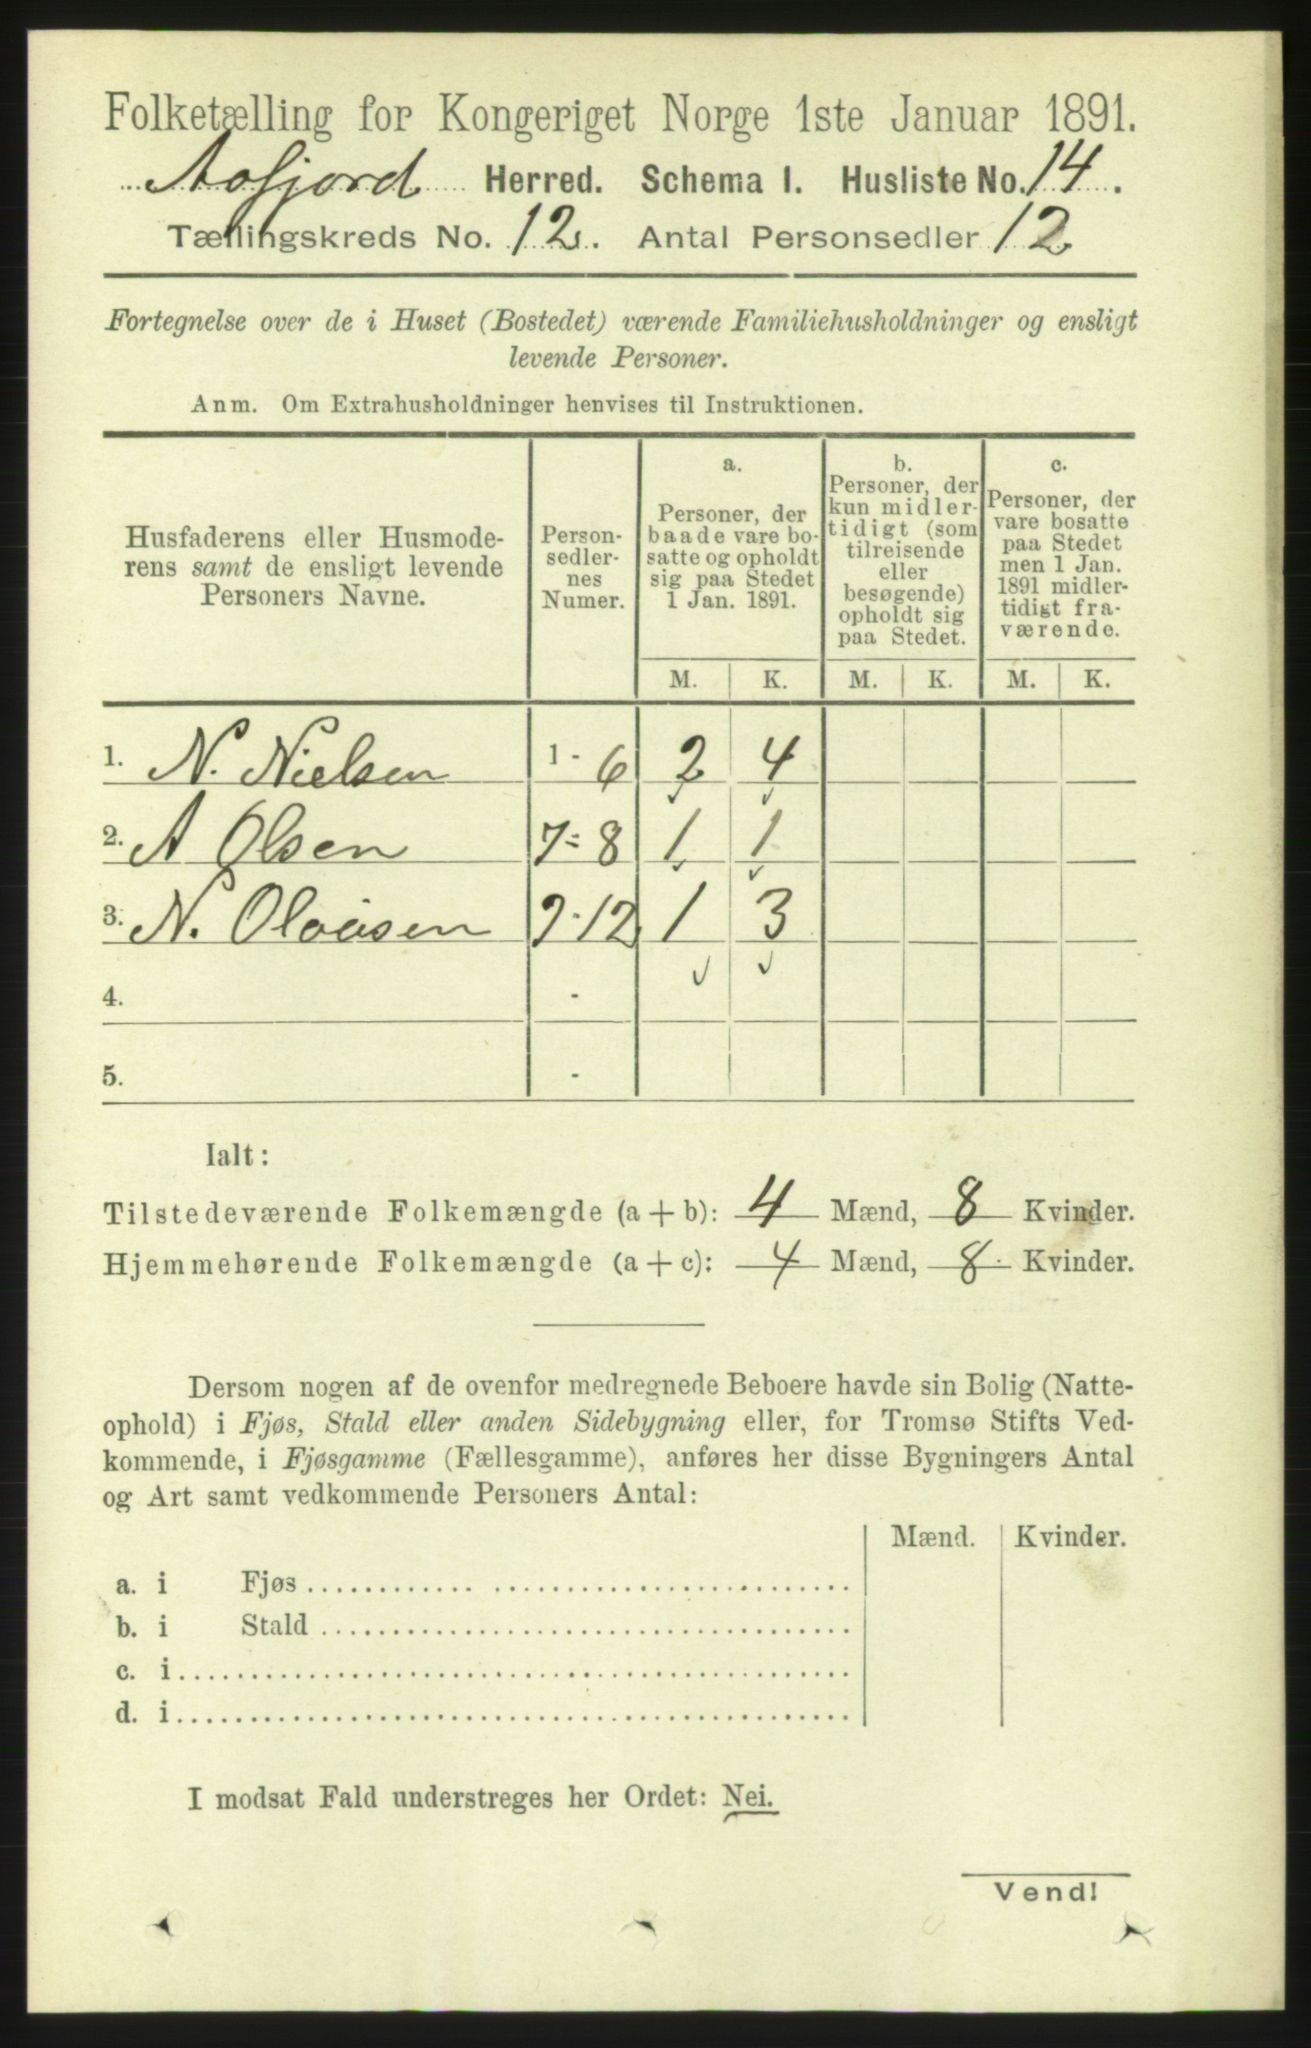 Folketælling for Kongeriget Norge 1ste Januar 1891.
Aafjord Herred. Schema I. Husliste No. 14.
Tællingskreds No. 12. Antal Personsedler 12
Fortegnelse over de i Huset (Bostedet) værende Familiehusholdninger og ensligt
levende Personer.
Anm. Om Extrahusholdninger henvises til Instruktionen.
Husfaderens eller Husmode-
rens samt de ensligt levende
Personers Navne.
Person-
sedler-
nes
Numer.
a.
Personer, der
baade vare bo-
satte og opholdt
sig paa Stedet
1 Jan. 1891.
b.
Personer, der
kun midler-
tidigt (som
tilreisende
eller
besøgende)
opholdt sig
paa Stedet.
c.
Personer, der
vare bosatte
paa Stedet
men 1 Jan.
1891 midler-
tidigt fra-
værende.
M. K. M. K. M. K.
1. N. Nielsen 1 - 6 2 4
2. A Olsen 7 - 8 1 1
3. N. Olaisen 9 - 12 1 3
4. -
5. -
Ialt:
Tilstedeværende Folkemængde (a + b): 4 Mænd, 8 Kvinder.
Hjemmehørende Folkemængde (a + c): 4 Mænd, 8 Kvinder.
Dersom nogen af de ovenfor medregnede Beboere havde sin Bolig (Natte-
ophold) i Fjøs, Stald eller anden Sidebygning eller, for Tromsø Stifts Ved-
kommende, i Fjøsgamme (Fællesgamme), anføres her disse Bygningers Antal
og Art samt vedkommende Personers Antal:
Mænd. Kvinder.
a. i Fjøs
b. i Stald
c. i
d. i
I modsat Fald understreges her Ordet: Nei.
Vend!